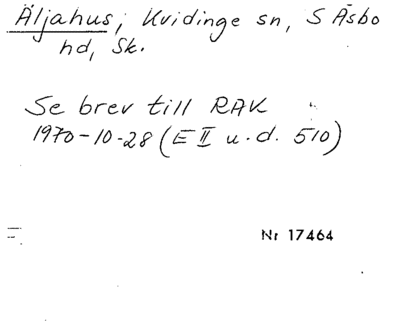 Äljahus, Kvidinge sn, S Åsbo
hd, Sk.
Se brev till RAK
1970-10-28 (E II u.d. 510)
Nr 17464